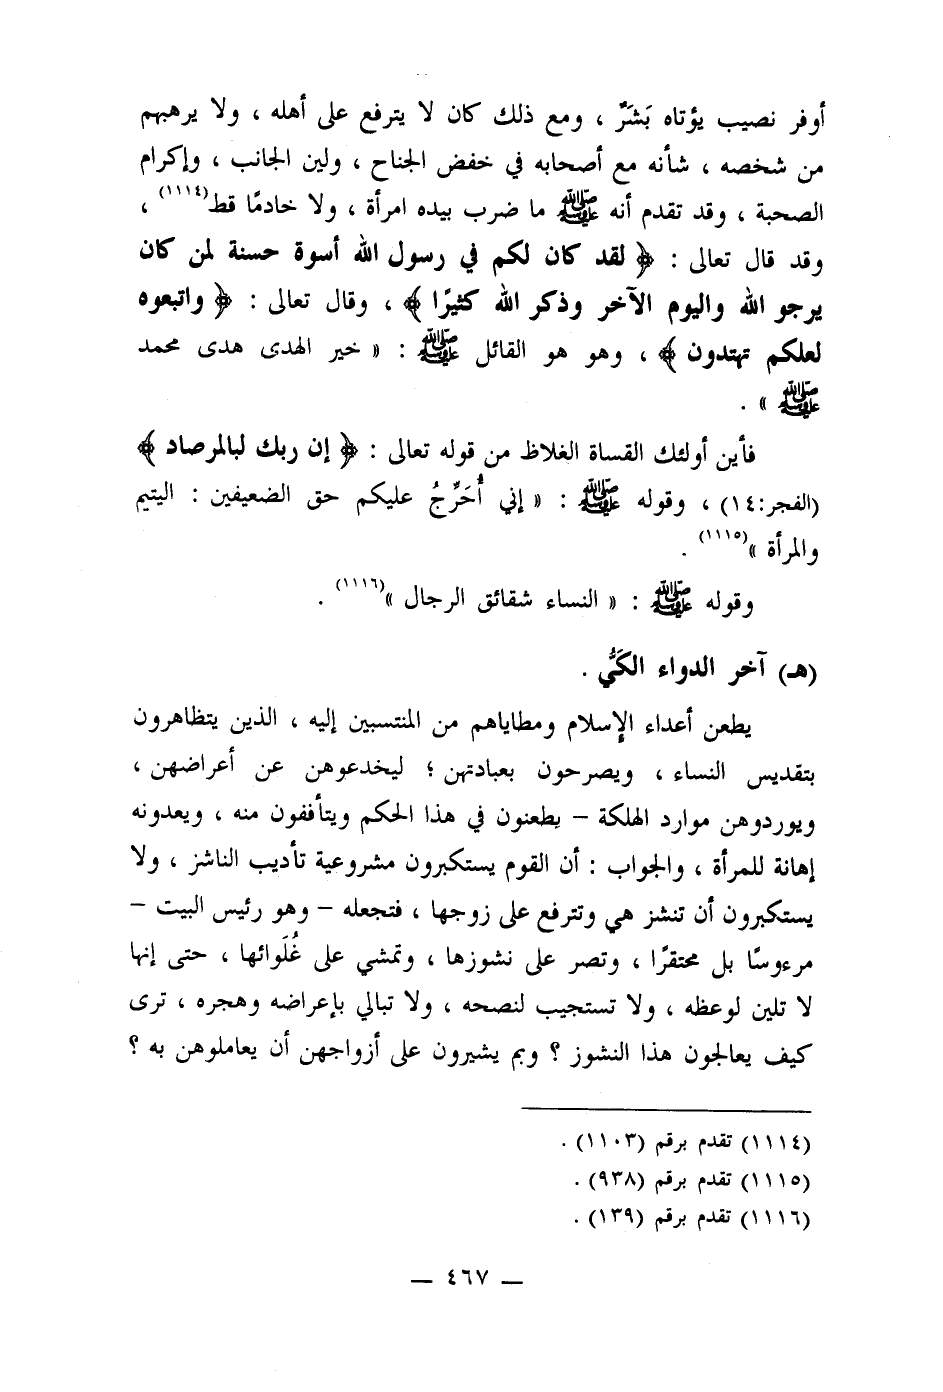 أوفر نصيب يؤتاه بَشَرٌ ، ومع ذلك كان لا يترفع على أهله ، ولا يرهبهم
من شخصه ، شأنه مع أصحابه في خفض الجناح ، ولين الجانب ، وإكرام
الصحبة ، وقد تقدم أنه ﷺ ما ضرب بيده امرأة ، ولا خادمًا قط(١١١٤) ،
وقد قال تعالى : ﴿ لقد كان لكم في رسول الله أسوة حسنة لمن كان
يرجو الله واليوم الآخر وذكر الله كثيرًا ﴾ ، وقال تعالى : ﴿ واتبعوه
لعلكم تهتدون ﴾ ، وهو هو القائل ﷺ : « خير الهدى هدى محمد
ﷺ » .
فأين أولئك القساة الغلاظ من قوله تعالى : ﴿ إن ربك لبالمرصاد ﴾
(الفجر:١٤) ، وقوله ﷺ : « إني أُحَرِّجُ عليكم حق الضعيفين : اليتيم
والمرأة »(١١١٥) .
وقوله ﷺ : « النساء شقائق الرجال »(١١١٦) .
(هـ) آخر الدواء الكَيُّ .
يطعن أعداء الإسلام ومطاياهم من المنتسبين إليه ، الذين يتظاهرون
بتقديس النساء ، ويصرحون بعبادتهن ؛ ليخدعوهن عن أعراضهن ،
ويوردوهن موارد الهلكة – يطعنون في هذا الحكم ويتأففون منه ، ويعدونه
إهانة للمرأة ، والجواب : أن القوم يستكبرون مشروعية تأديب الناشز ، ولا
يستكبرون أن تنشز هي وتترفع على زوجها ، فتجعله – وهو رئيس البيت –
مرءوسًا بل محتقرًا ، وتصر على نشوزها ، وتمشي على غُلَوائها ، حتى إنها
لا تلين لوعظه ، ولا تستجيب لنصحه ، ولا تبالي بإعراضه وهجره ، ترى
كيف يعالجون هذا النشوز ؟ وبم يشيرون على أزواجهن أن يعاملوهن به ؟
(١١١٤) تقدم برقم (١١٠٣) .
(١١١٥) تقدم برقم (٩٣٨) .
(١١١٦) تقدم برقم (١٣٩) .
— ٤٦٧ —